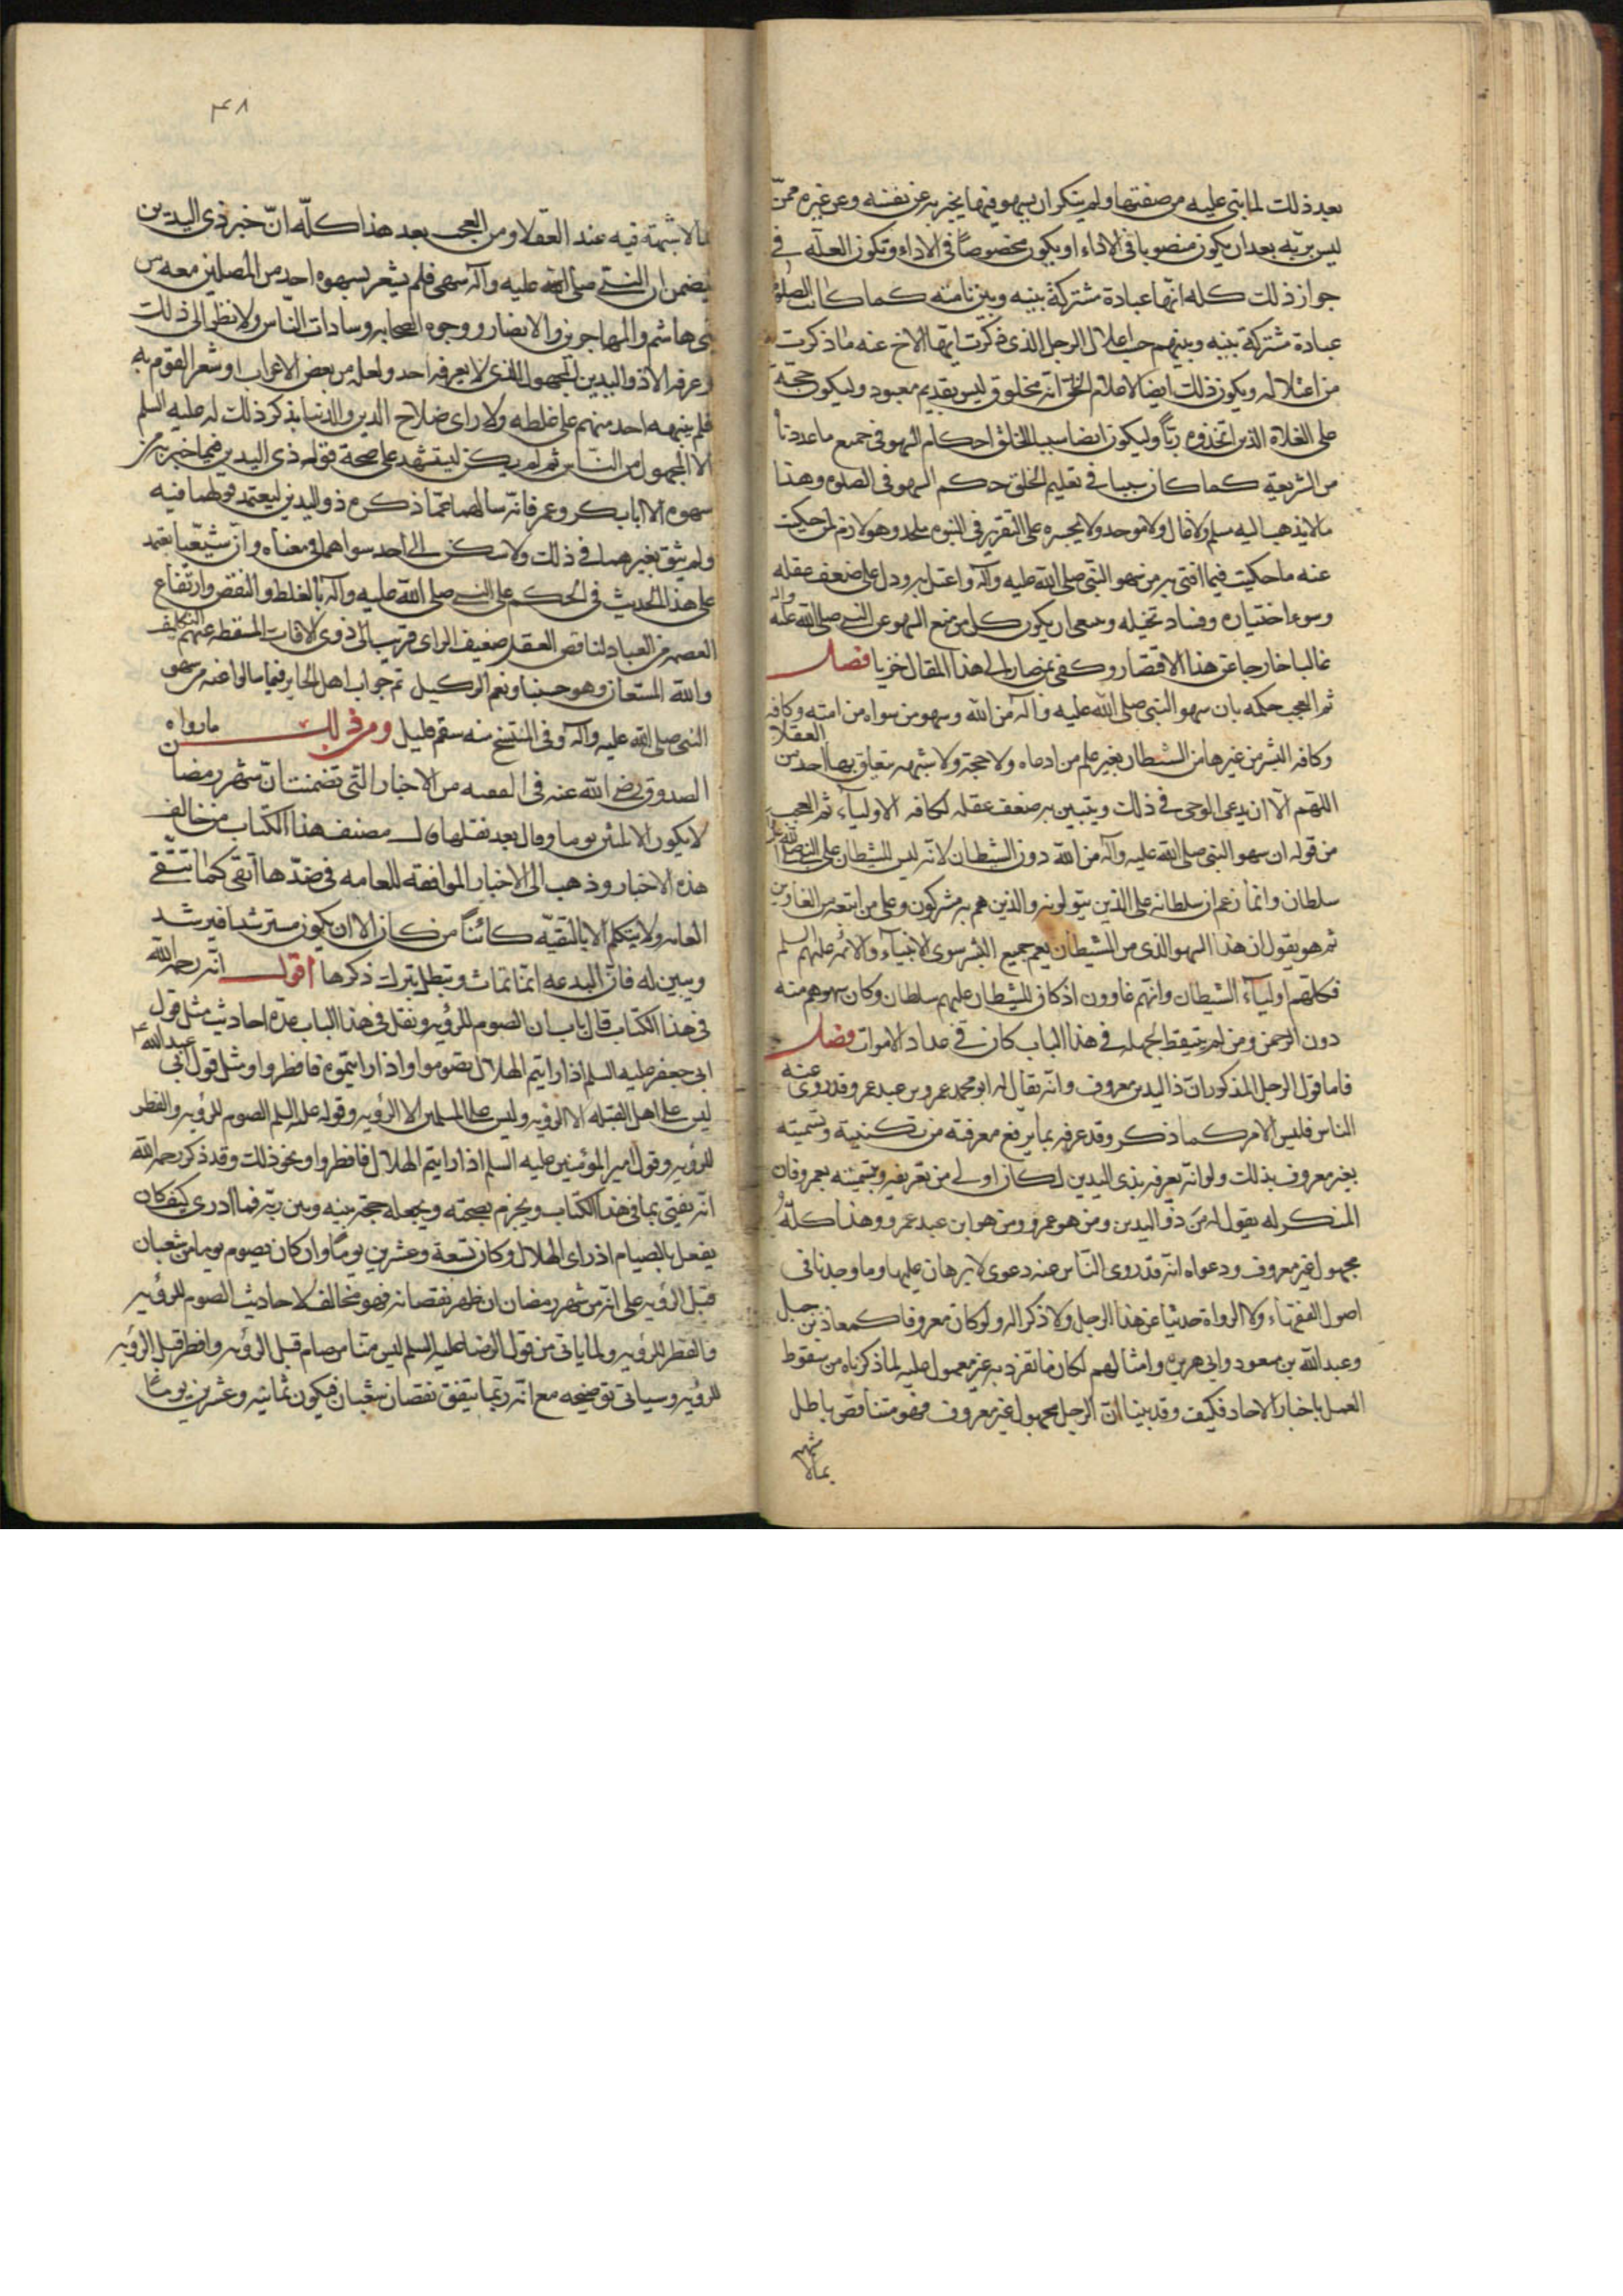 بعد ذلك لما بنى عليه من صفتها ولم ينكر ان يسهو فيما يخبر به عن نفسه وعن غيره ممن
ليس بربه بعد ان يكون منصوبا فى الاداء او يكون مخصوصاً فى الاداء وتكون العلة فى
جواز ذلك كله انها عبادة مشتركة بينه وبين امته كما كانت الصلوة
عبادة مشتركة بينه وبينهم حسب اعلال الرجل الذى ذكرت ايها الاخ عنه ما ذكرت
من اعتلاله ويكون ذلك ايضا لاعلام الخلق انه مخلوق ليس بقديم معبود وليكون حجة
على الغلاة الذين اتخذوه رباً وليكون ايضا سببا لتعليم الخلق احكام السهو فى جميع ما عددناه
من الشريعة كما كان سببا فى تعليم الخلق حكم السهو فى الصلوة وهذا
ما لا يذهب اليه مسلم ولا غال ولا موحد ولا يجيزه على التقرير فى النبوة ملحد وهو لازم لمن حكيت
عنه ما حكيت فيما افتى به من سهو النبى صلى الله عليه وآله واعتل به ودل على ضعف عقله
وسوء اختياره وفساد تخيله وينبغى ان يكون كل من منع السهو على النبى صلى الله عليه وآله
غاليا خارجا عن هذا الاقتصار وكفى بمن صار الى هذا المقال خزيا فصل
ثم العجب حكمه بان سهو النبى صلى الله عليه وآله من الله وسهو من سواه من امته وكافة
وكافه البشر من غيرها من الشيطان بغير علم من ادعاه ولا حجة ولا شبهه يتعلق بها احد من العقلا
اللهم الا ان يدعى الوحى فى ذلك ويتبين به ضعف عقله لكافه الاولياء ثم العجب
من قوله ان سهو النبى صلى الله عليه وآله من الله دون الشيطان لانه ليس للشيطان على النبى صلى الله عليه
سلطان وانما زعم ان سلطانه على الذين يتولونه والذين هم به مشركون وعلى من اتبعه من الغاوين
ثم هو يقول ان هذا السهو الذى من الشيطان يعم جميع البشر سوى الانبياء والائمه عليهم السلم
فكلهم اولياء الشيطان وانهم غاوون اذ كان للشيطان عليهم سلطان وكان سهوهم منه
دون الرحمن ومن لم يتيقظ لجهله فى هذا الباب كان فى عداد الاموات فصل
فاما قول الرجل المذكور ان ذا اليدين معروف وانه يقال له ابو محمد عمرو بن عبد عمرو وقد روى عنه
الناس فليس الامر كما ذكر وقد عرفه بما يرفع معرفته من تكنيته وتسميته
بغير معروف بذلك ولو انه يعرفه بذى اليدين لكان اولى من تعريفه وتسميته بعمرو فان
المنكر له يقول له من ذو اليدين ومن هو عمرو ومن هو ابن عبد عمرو وهذا كله
مجهول غير معروف ودعواه انه قد روى الناس عنه دعوى لا برهان عليها وما وجدنا فى
اصول الفقهاء ولا الرواة حديثا عن هذا الرجل ولا ذكرا له ولو كان معروفا كمعاذ بن جبل
وعبد الله بن مسعود وابى هريره وامثالهم لكان ما تفرد به غير معمول عليه لما ذكرناه من سقوط
العمل باخبار الاحاد فكيف وقد بينا ان الرجل مجهول غير معروف فهو متناقض باطل
بما لا شبهة
٤٨
بما لا شبهة فيه عند العقلا ومن العجب بعد هذا كله ان خبر ذى اليدين
يتضمن ان النبى صلى الله عليه وآله سهى فلم يشعر بسهوه احد من المصلين معه من
بنى هاشم والمهاجرين والانصار ووجوه الصحابه وسادات الناس ولا نظر الى ذلك
وعرفه الا ذو اليدين المجهول الذى لا يعرفه احد ولعله من بعض الاعراب او شعر القوم به
فلم ينبهه احد منهم على غلطه ولا راى صلاح الدين والدنيا بذكر ذلك له عليه السلم
الا المجهول من الناس ثم لم يكن ليستشهد على صحة قوله ذى اليدين فيما خبر به من
سهوه الا ابا بكر وعمر فانه سالهما عما ذكره ذو اليدين ليعتمد قولهما فيه
ولم يثق بغيرهما فى ذلك ولا سكن الى احد سواهما فى معناه وان شيعيا يعتمد
على هذا الحديث فى الحكم على النبى صلى الله عليه وآله بالغلط والنقص وارتفاع
العصمه من العباد لناقص العقل ضعيف الراى قريب الى ذوى الآفات المسقطه عنهم التكليف
والله المستعان وهو حسبنا ونعم الوكيل تم جواب اهل الحاير فيما سالوا عنه من سهو
النبى صلى الله عليه وآله وفى النسخ منه سقم قليل ومن ذلك ما رواه
الصدوق رضى الله عنه فى الفقيه من الاخبار التى تضمنت ان شهر رمضان
لا يكون الا ثلثين يوما وقال بعد نقلها قال مصنف هذا الكتاب من خالف
هذه الاخبار وذهب الى الاخبار الموافقة للعامه فى ضدها اتقى كما تتقى
العامه ولا يتكلم الا بالتقيه كائناً من كان الا ان يكون مسترشدا فيرشد
ويبين له فان البدعه انما تماث وتبطل بترك ذكرها اقول انه رحمه الله
فى هذا الكتاب قال باب ان الصوم للرؤيه ونقل فى هذا الباب عدة احاديث مثل قول
ابى جعفر عليه السلم اذا رايتم الهلال فصوموا واذا رايتموه فافطروا ومثل قول ابى عبد الله ع
ليس على اهل القبله الا الرؤيه وليس على المسلمين الا الرؤيه وقوله عليه السلم الصوم للرؤيه والفطر
للرؤيه وقول امير المؤمنين عليه السلم اذا رايتم الهلال فافطروا ونحو ذلك وقد ذكر رحمه الله
انه يفتى بما فى هذا الكتاب ويجزم بصحته ويجعله حجة بينه وبين ربه فما ادرى كيف كان
يفعل بالصيام اذ راى الهلال وكان تسعة وعشرين يوماً وان كان يصوم يوما من شعبان
قبل الرؤيه على انه من شهر رمضان ان ظهر نقصانه فهو مخالف لاحاديث الصوم للرؤيه
والفطر للرؤيه ولما ياتى من قول الرضا عليه السلم ليس منا من صام قبل الرؤيه وافطر قبل الرؤيه
للرؤيه وسياتى توضيحه مع انه ربما يتفق نقصان شعبان فيكون ثمانيه وعشرين يوماً